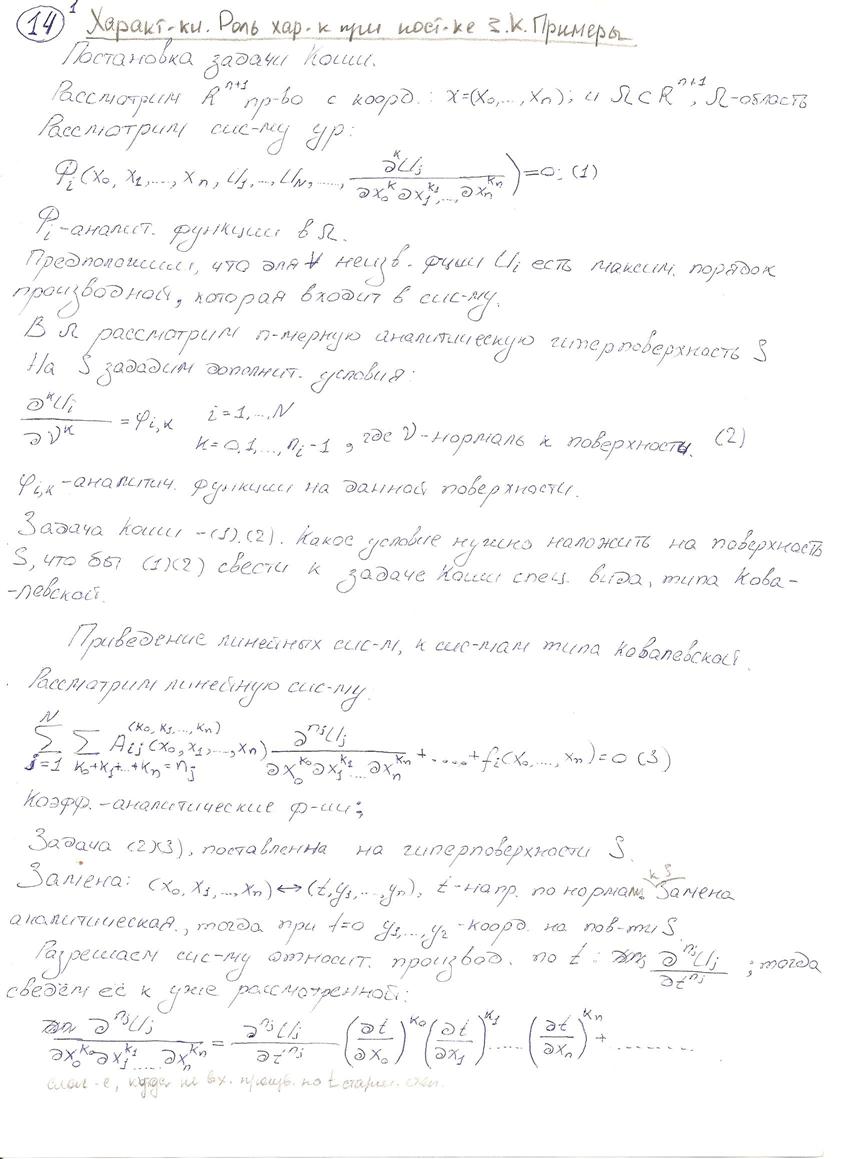 14 1 Характ-ки. Роль хар-к при пост-ке З.К. Примеры
Постановка задачи Коши.
Рассмотрим R^{n+1} пр-во с коорд.: x=(x_0,...,x_n); и Ω⊂R^{n+1}, Ω-область
Рассмотрим сис-му ур:
Φ_i(x_0, x_1,..., x_n, U_1,..., U_N,...., ∂^k U_j / ∂x_0^k ∂x_1^{k_1},..., ∂x_n^{k_n})=0; (1)
Φ_i-аналит. функции в Ω.
Предположим, что для ∀ неизв. фции U_i есть максим. порядок
производной, которая входит в сис-му.
В Ω рассмотрим n-мерную аналитическую гиперповерхность S
На S зададим дополнит. условия:
∂^k U_i / ∂ν^k = φ_{i,k} i=1,..,N
k=0,1,...,n_i-1, где ν-нормаль к поверхности. (2)
φ_{i,k}-аналитич. функции на данной поверхности.
Задача Коши -(1).(2). Какое условие нужно наложить на поверхность
S, что бы (1)(2) свести к задаче Коши спец. вида, типа Кова-
-левской.
Приведение линейных сис-м, к сис-мам типа Ковалевской.
Рассмотрим линейную сис-му.
∑_{j=1}^{N} ∑_{k_0+k_1+...+k_n=n_j} A_{ij}^{(k_0,k_1,...,k_n)}(x_0,x_1,...,x_n) ∂^{n_j}U_j / ∂x_0^{k_0}∂x_1^{k_1}....∂x_n^{k_n} +.....+f_i(x_0,...,x_n)=0 (3)
Коэфф.-аналитические ф-ии;
Задача (2)(3), поставленна на гиперповерхности S.
Замена: (x_0,x_1,...,x_n)↔(t,y_1,...,y_n), t-напр. по нормали к S. Замена
аналитическая., тогда при t=0 y_1,...,y_2 -коорд. на пов-ти S.
Разрешаем сис-му относит. производ. по t: ∂^{n_j}U_j / ∂t^{n_j} ; тогда
сведём её к уже рассмотренной:
∂^{n_j}U_j / ∂x_0^{k_0}∂x_1^{k_1}.....∂x_n^{k_n} = ∂^{n_j}U_j / ∂t^{n_j} (∂t/∂x_0)^{k_0} (∂t/∂x_1)^{k_1} ...... (∂t/∂x_n)^{k_n} + ........
слаг-е, куда не вх. произв. по t старш. степ.